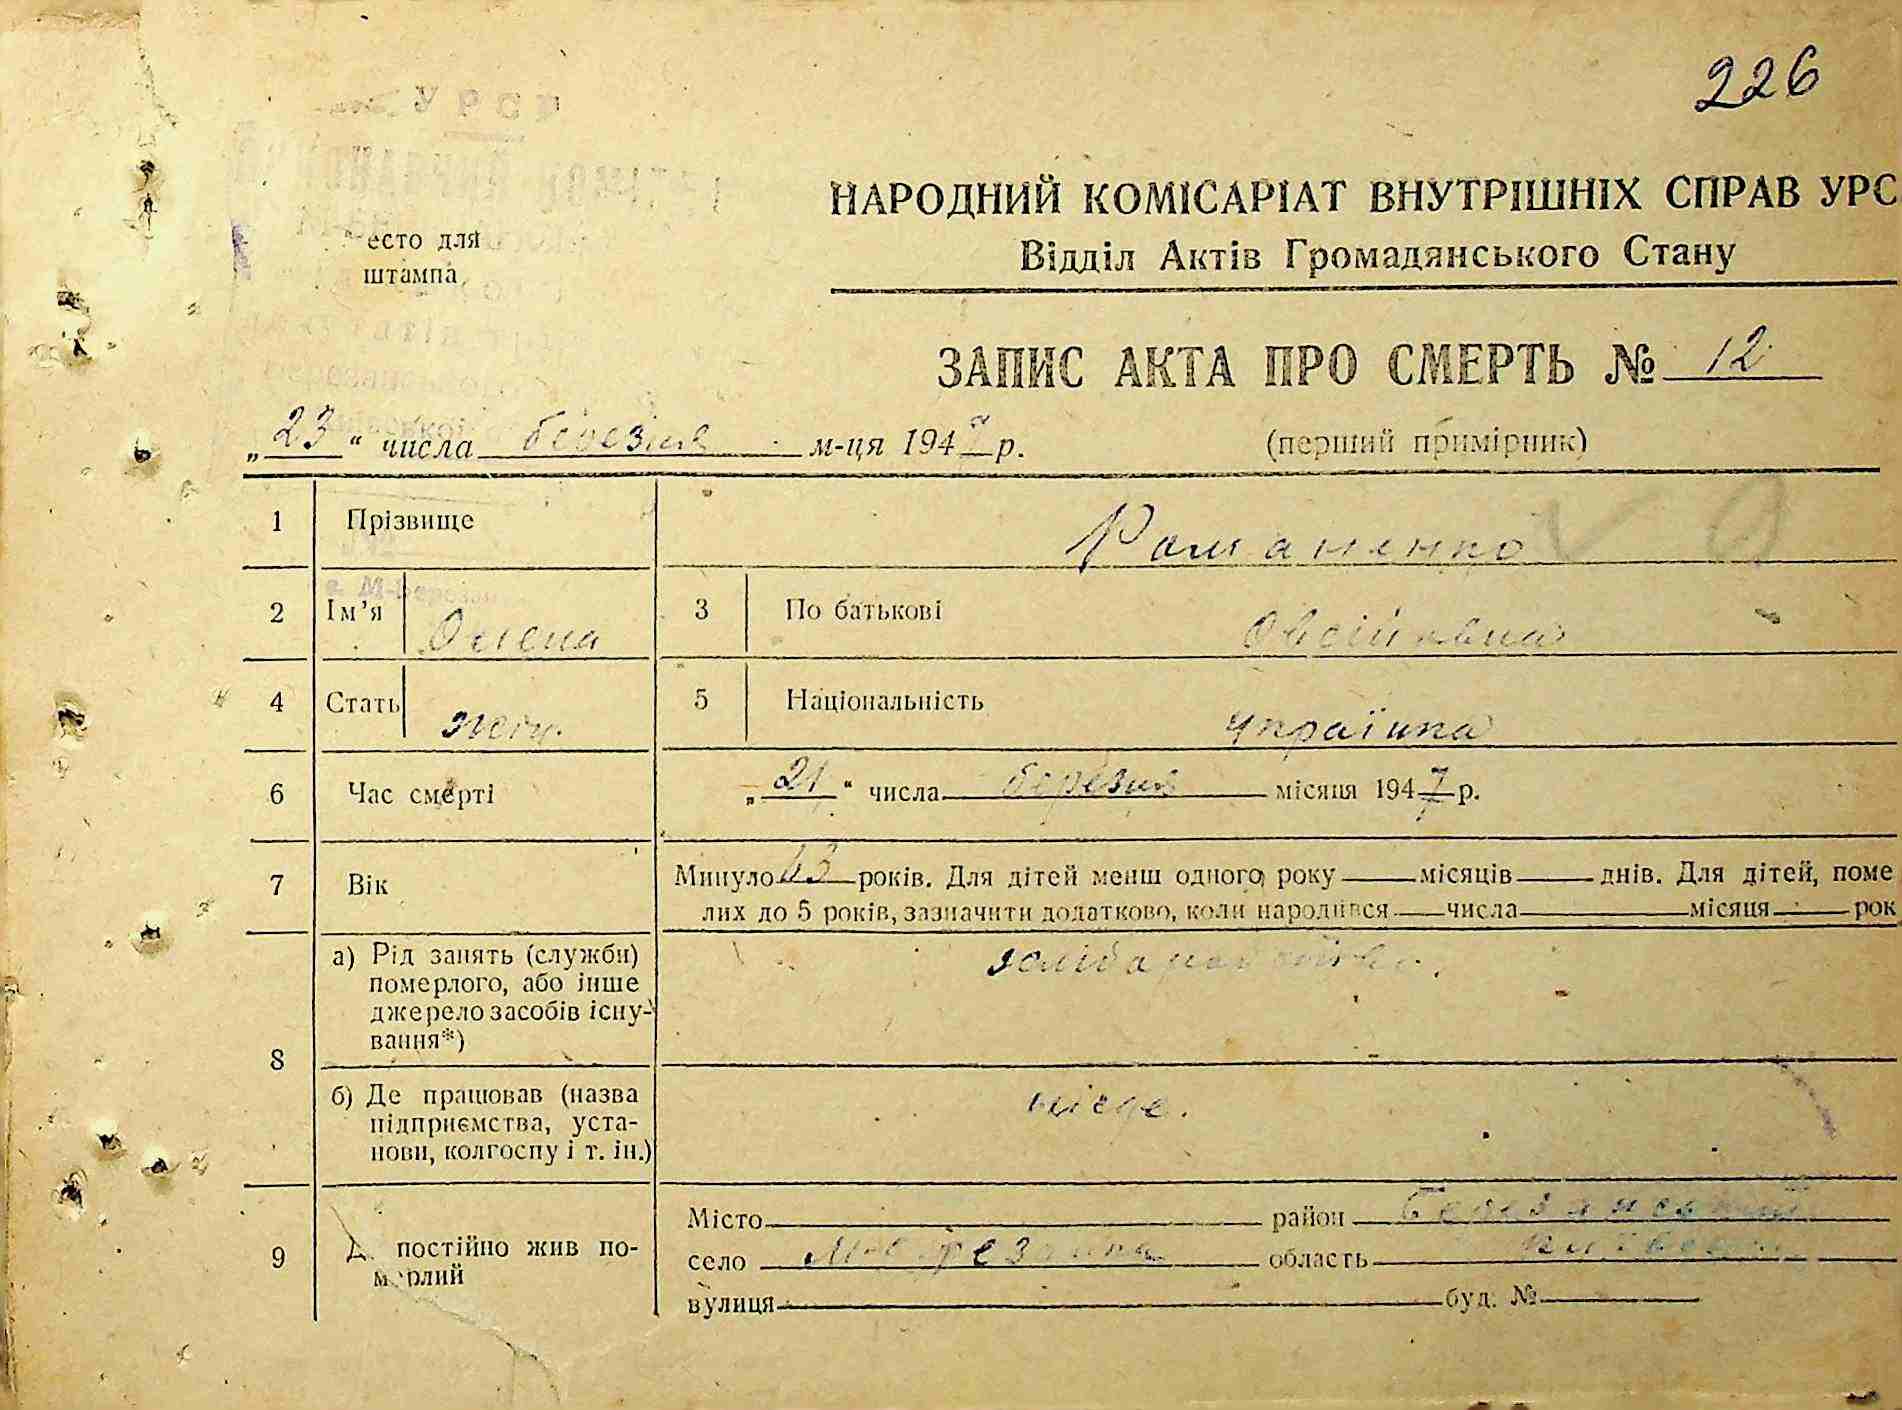 226
УРСР
есто для
штампа
НАРОДНИЙ КОМІСАРІАТ ВНУТРІШНІХ СПРАВ УРС
Відділ Актів Громадянського Стану
ЗАПИС АКТА ПРО СМЕРТЬ № 12
„23“ числа березня м-ця 1947 р. (перший примірник)
1 Прізвище Романенко
с. М-Березан
2 Ім’я Олена 3 По батькові Овсіївна
4 Стать жін. 5 Національність українка
6 Час смерті „21“ числа березня місяця 1947 р.
7 Вік Минуло 43 років. Для дітей менш одного року місяців днів. Для дітей, поме
лих до 5 років, зазначити додатково, коли народився числа місяця рок
8 а) Рід занять (служби)
померлого, або інше
джерело засобів існу-
вання*)
б) Де працював (назва
підприємства, уста-
нови, колгоспу і т. ін.)
9 Д постійно жив по-
м рлий
Місто район Березанський
село область Київська
вулиця буд. №